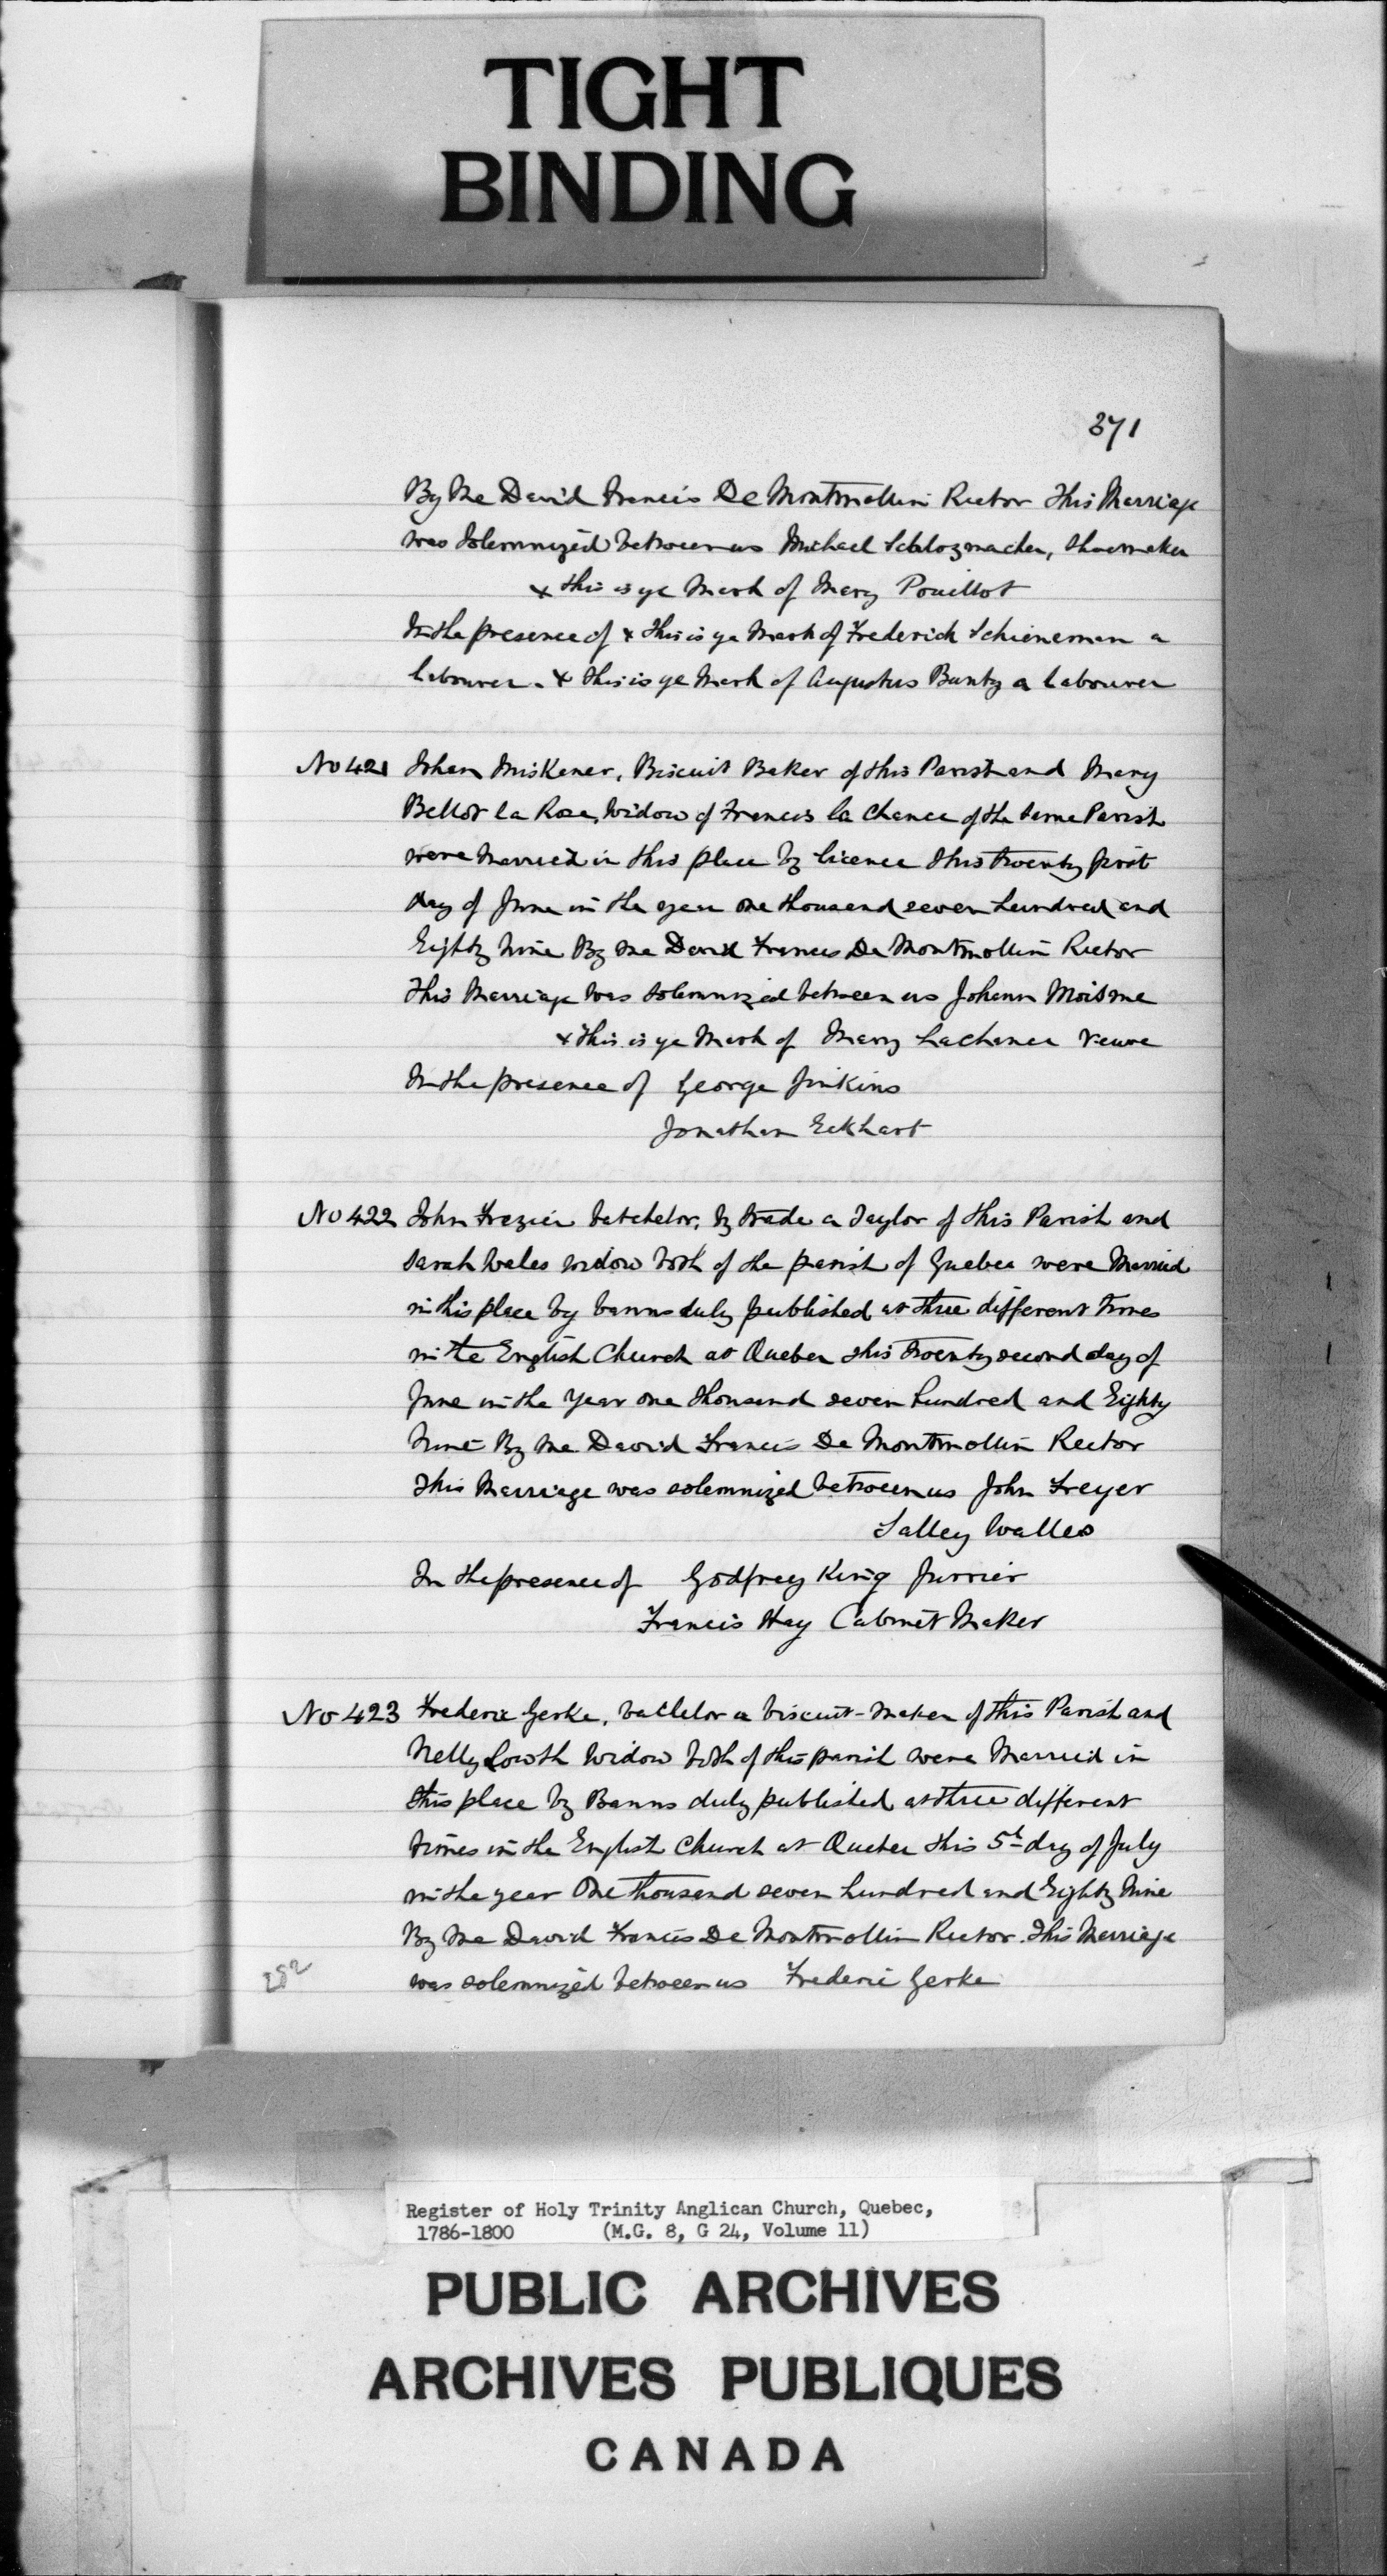 TIGHT
BINDING
371
By Me David Francis De Montmollin Rector This Marriage
was Solemnized between us Michael Schlozmacher, Shoemaker
x this is ye Mark of Mary Pouillot
In the presence of x this is ye Mark of Frederick Schieneman a
labourer. x this is ye Mark of Augustus Buntz a labourer
No 421 Johan Miskener, Biscuit Baker of this Parish and Mary
Bellot la Rose, Widow of Francis la Chance of the same Parish
were Married in this place by licence this twenty first
day of June in the year one thousand seven hundred and
Eighty Nine By me David Francis De Montmollin Rector
This Marriage was solemnized between us Johann Moisme
x this is ye Mark of Mary Lachance Veuve
In the presence of George Jinkins
Jonathan Eckhart
No 422 John Frezier batchelor, by trade a Taylor of this Parish and
Sarah Wales widow both of the parish of Quebec were Married
in this place by banns duly published at three different times
in the English Church at Quebec this twenty second day of
June in the Year one thousand seven hundred and Eighty
Nine By me David Francis De Montmollin Rector
This Marriage was solemnized between us John Freyer
Salley Walles
In the presence of Godfrey King Furrier
Francis Hay Cabinet Maker
No 423 Frederic Gerke, batchelor a biscuit-maker of this Parish and
Nelly Lowth Widow both of this parish were Married in
this place by Banns duly published at three different
times in the English Church at Quebec this 5th day of July
in the year One thousand seven hundred and Eighty Nine
By me David Francis De Montmollin Rector. This Marriage
was solemnized between us Frederic Gerke
Register of Holy Trinity Anglican Church, Quebec,
1786-1800 (M.G. 8, G 24, Volume 11)
PUBLIC ARCHIVES
ARCHIVES PUBLIQUES
CANADA